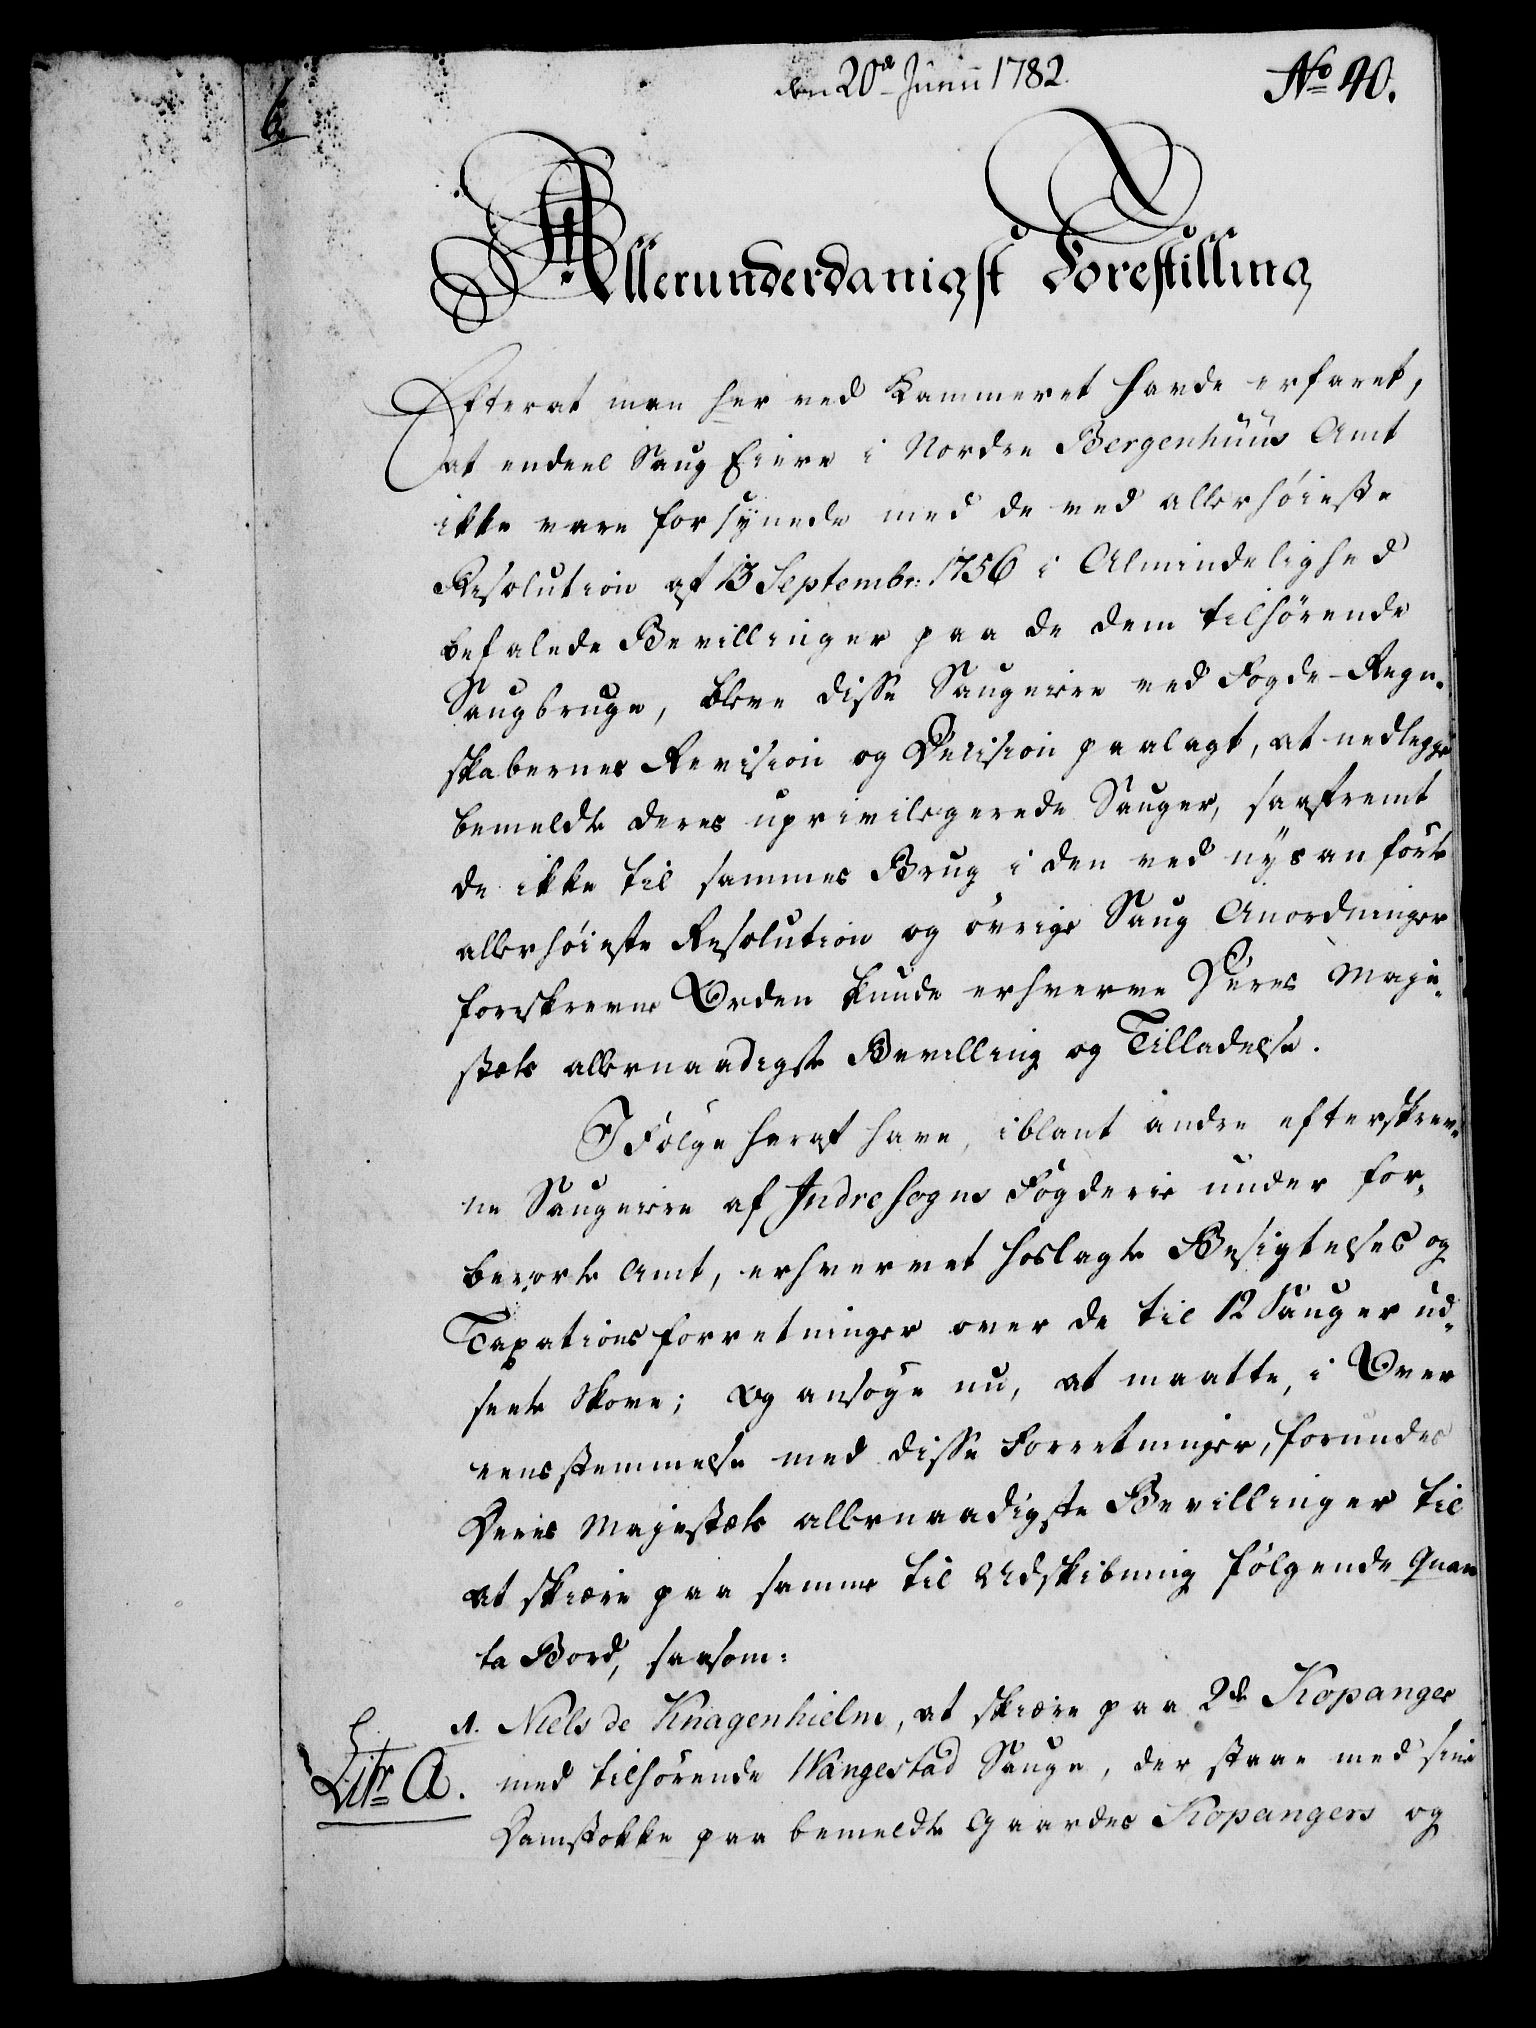 den 20de Junii 1782.
No 40.
6
Allerunderdanigst Forestilling
Efterat man her ved Kammeret havde erfaret,
at endeel Saug Eiere i Nordre Bergenhuus Amt
ikke vare forsynede med de ved allerhöieste
Resolution af 13 Septembr: 1756 i Almindelighed
befalede Bevillinger paa de dem tilhörende
Saugbruge, bleve disse Saugeiere ved Fogde-Regn-
skabernes Revision og Decision paalagt, at nedlegge
bemeldte deres uprivilegerede Sauger, saafremt
de ikke til sammes Brug i den ved nys anförte
allerhöieste Resolution og övrige Saug Anordninger
forskrevne Orden kunde erhverve Deres Maje-
stæts allernaadigste Bevilling og Tilladelse.
I Fölge heraf have, iblant andre efterskrev-
ne Saugeiere af Indresogns Fogderie under for-
berörte Amt, erhvervet hoslagte Besigtelses og
Taxations forretninger over de til 12 Sauger ud-
seete Skove; og ansöge nu, at maatte, i Over
eensstemmelse med disse Forretninger, forundes
Deres Majestæts allernaadigste Bevillinger til
at skiære paa samme til Udskibning fölgende Quan
ta Bord, saasom:
1. Niels de Knagenhielm, at skiære paa 2de Kopanger
med tilhörende Wangestad Sauge, der staae med sine
Damstokke paa bemeldte Gaardes Kopangers og
Litr A.